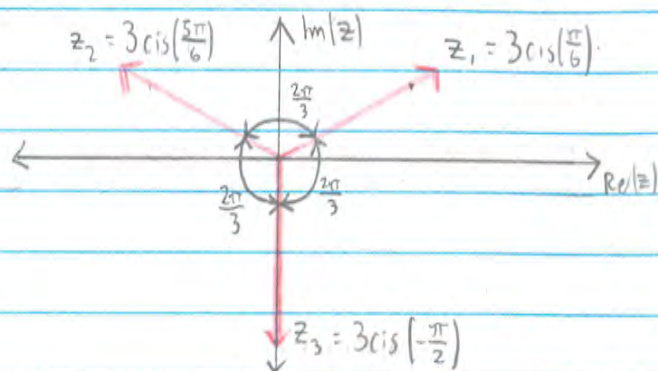 z₂ = 3cis(5π/6)
Im(z)
z₁ = 3cis(π/6)
2π/3
Re(z)
2π/3
2π/3
z₃ = 3cis(-π/2)